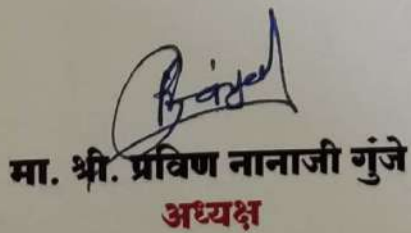 मा. श्री. प्रविण नानाजी गुंजे
अध्यक्ष